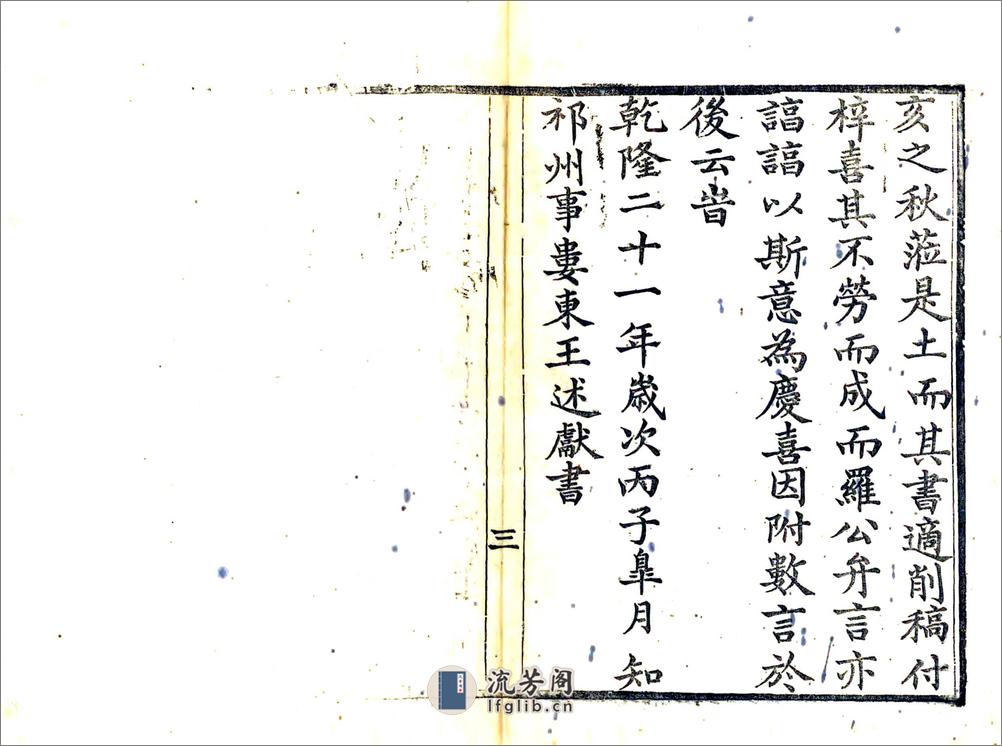 亥之秋蒞是土而其書適削稿付
梓喜其不勞而成而羅公弁言亦
諄諄以斯意為慶喜因附數言於
後云旹
乾隆二十一年歲次丙子臯月知
祁州事婁東王述獻書
三
流芳阁
lfglib.cn